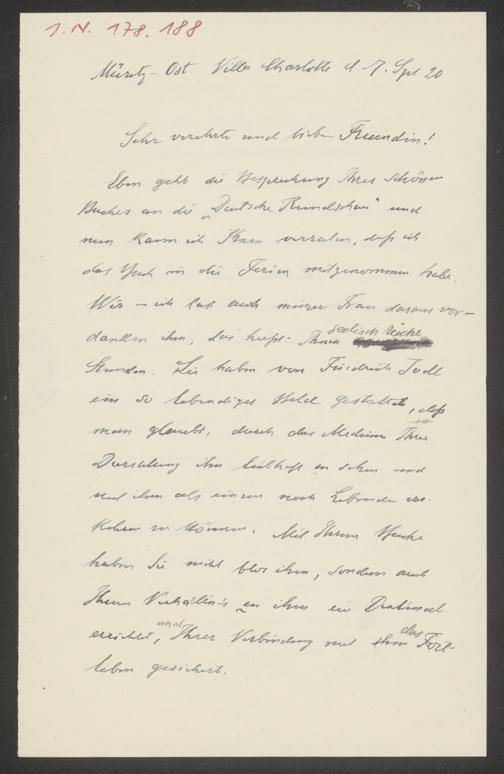 I.N. 178.188
Müritz-Ost Villa Charlotte d 7. Spt 20
Sehr verehrte und liebe Freundin!
Eben geht die Besprechung Ihres schönen
Buches an die „Deutsche Rundschau" und
nun kann ich Ihnen verraten, daß ich
das Buch in die Ferien mitgenommen habe.
Wir – ich las auch meiner Frau daraus vor –
danken ihm, das heißt: Ihnen seelisch reiche
Stunden. Sie haben von Friedrich Jodl
ein so lebendiges Bild gestaltet, daß
man glaubt, durch das Medium Ihrer
Darstellung ihn leibhaft zu sehen und
mit ihm als einem noch Lebenden ver-
kehren zu können. Mit Ihrem Buche
haben Sie nicht blos ihm, sondern auch
Ihrem Verhältnis zu ihm ein Denkmal
errichtet, und Ihrer Verbindung mit ihm das Fort-
leben gesichert.